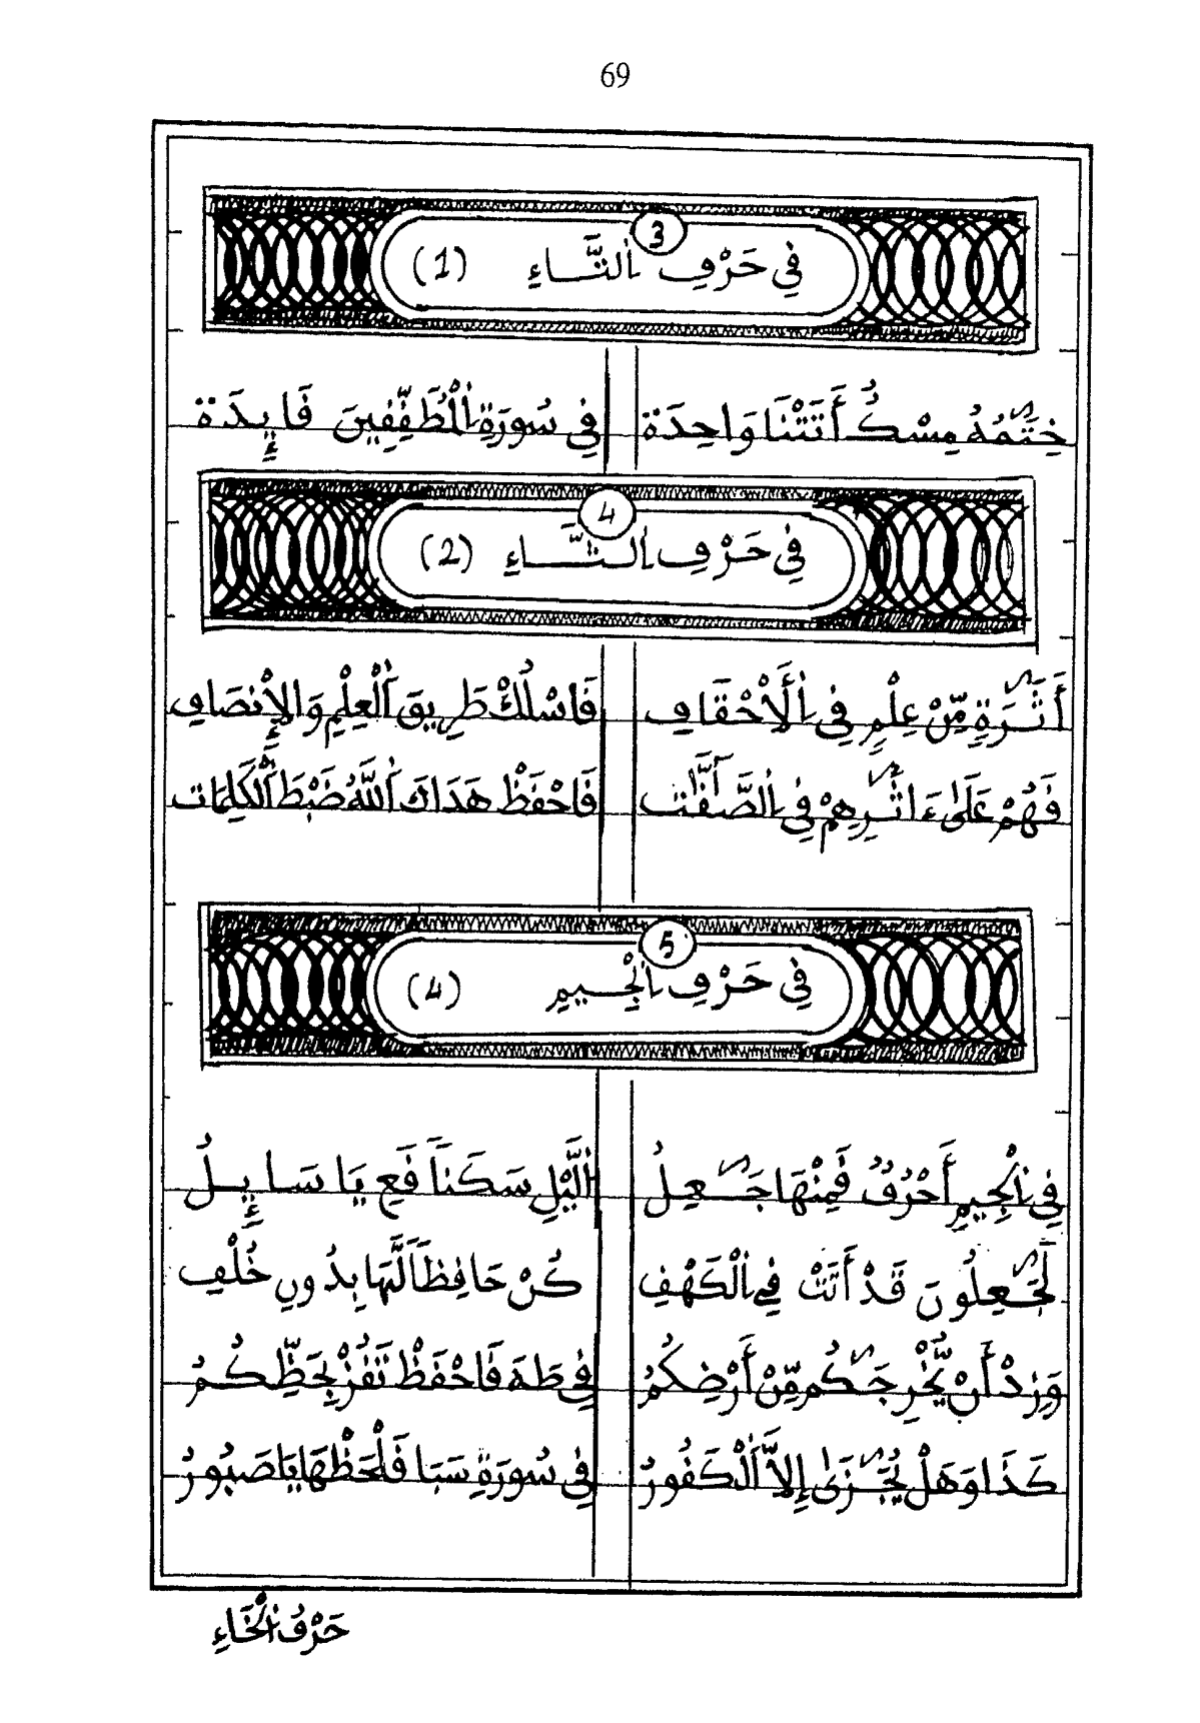 69
3
فِي حَرْفِ اَلتَّاءِ (1)
خِتَٰمُهُ مِسْكٌ أَتَتْنَا وَاحِدَة فِي سُورَةِ اِلْمُطَفِّفِينَ فَايِٕدَة
4
فِي حَرْفِ اَلثَّاءِ (2)
أَثَٰرَةٍ مِّنْ عِلْمٍ فِي اِلَأحْقَافِ فَاسْلُكْ طَرِيقَ اَلْعِلْمِ وَالإِنْصَافِ
فَهُمْ عَلَىٰ ءَاثَٰرِهِمْ فِي اِلصَّٰٓفَّٰت فَاحْفَظْ هَدَاكَ اَللَّهُ ضَبْطَ اَلْكَلِمَات
5
فِي حَرْفِ اِلْجِيمِ (4)
فِي اِلْجِيمِ أَحْرُفٌ فَمِنْهَا جَٰعِلُ اُللَّيْلِ سَكَناً فَعِ يَا سَايِٕلُ
لَجَٰعِلُونَ قَدْ أَتَتْ فِي اِلْكَهْفِ كُنْ حَافِظاً لَّهَا بِدُونِ خُلْفِ
وَزِدْ أَنْ يُّخْرِجَٰكُم مِّنْ أَرْضِكُمُ فِي طَهَ فَاحْفَظْ تَفُزْ بِحَظِّكُمُ
كَذَا وَهَلْ يُجَٰزَىٰ إِلاَّ اَلْكَفُورُ فِي سُورَةِ سَبَا فَلْحَظْهَا يَا صَبُورُ
حَرْفُ اَلْخَاءِ